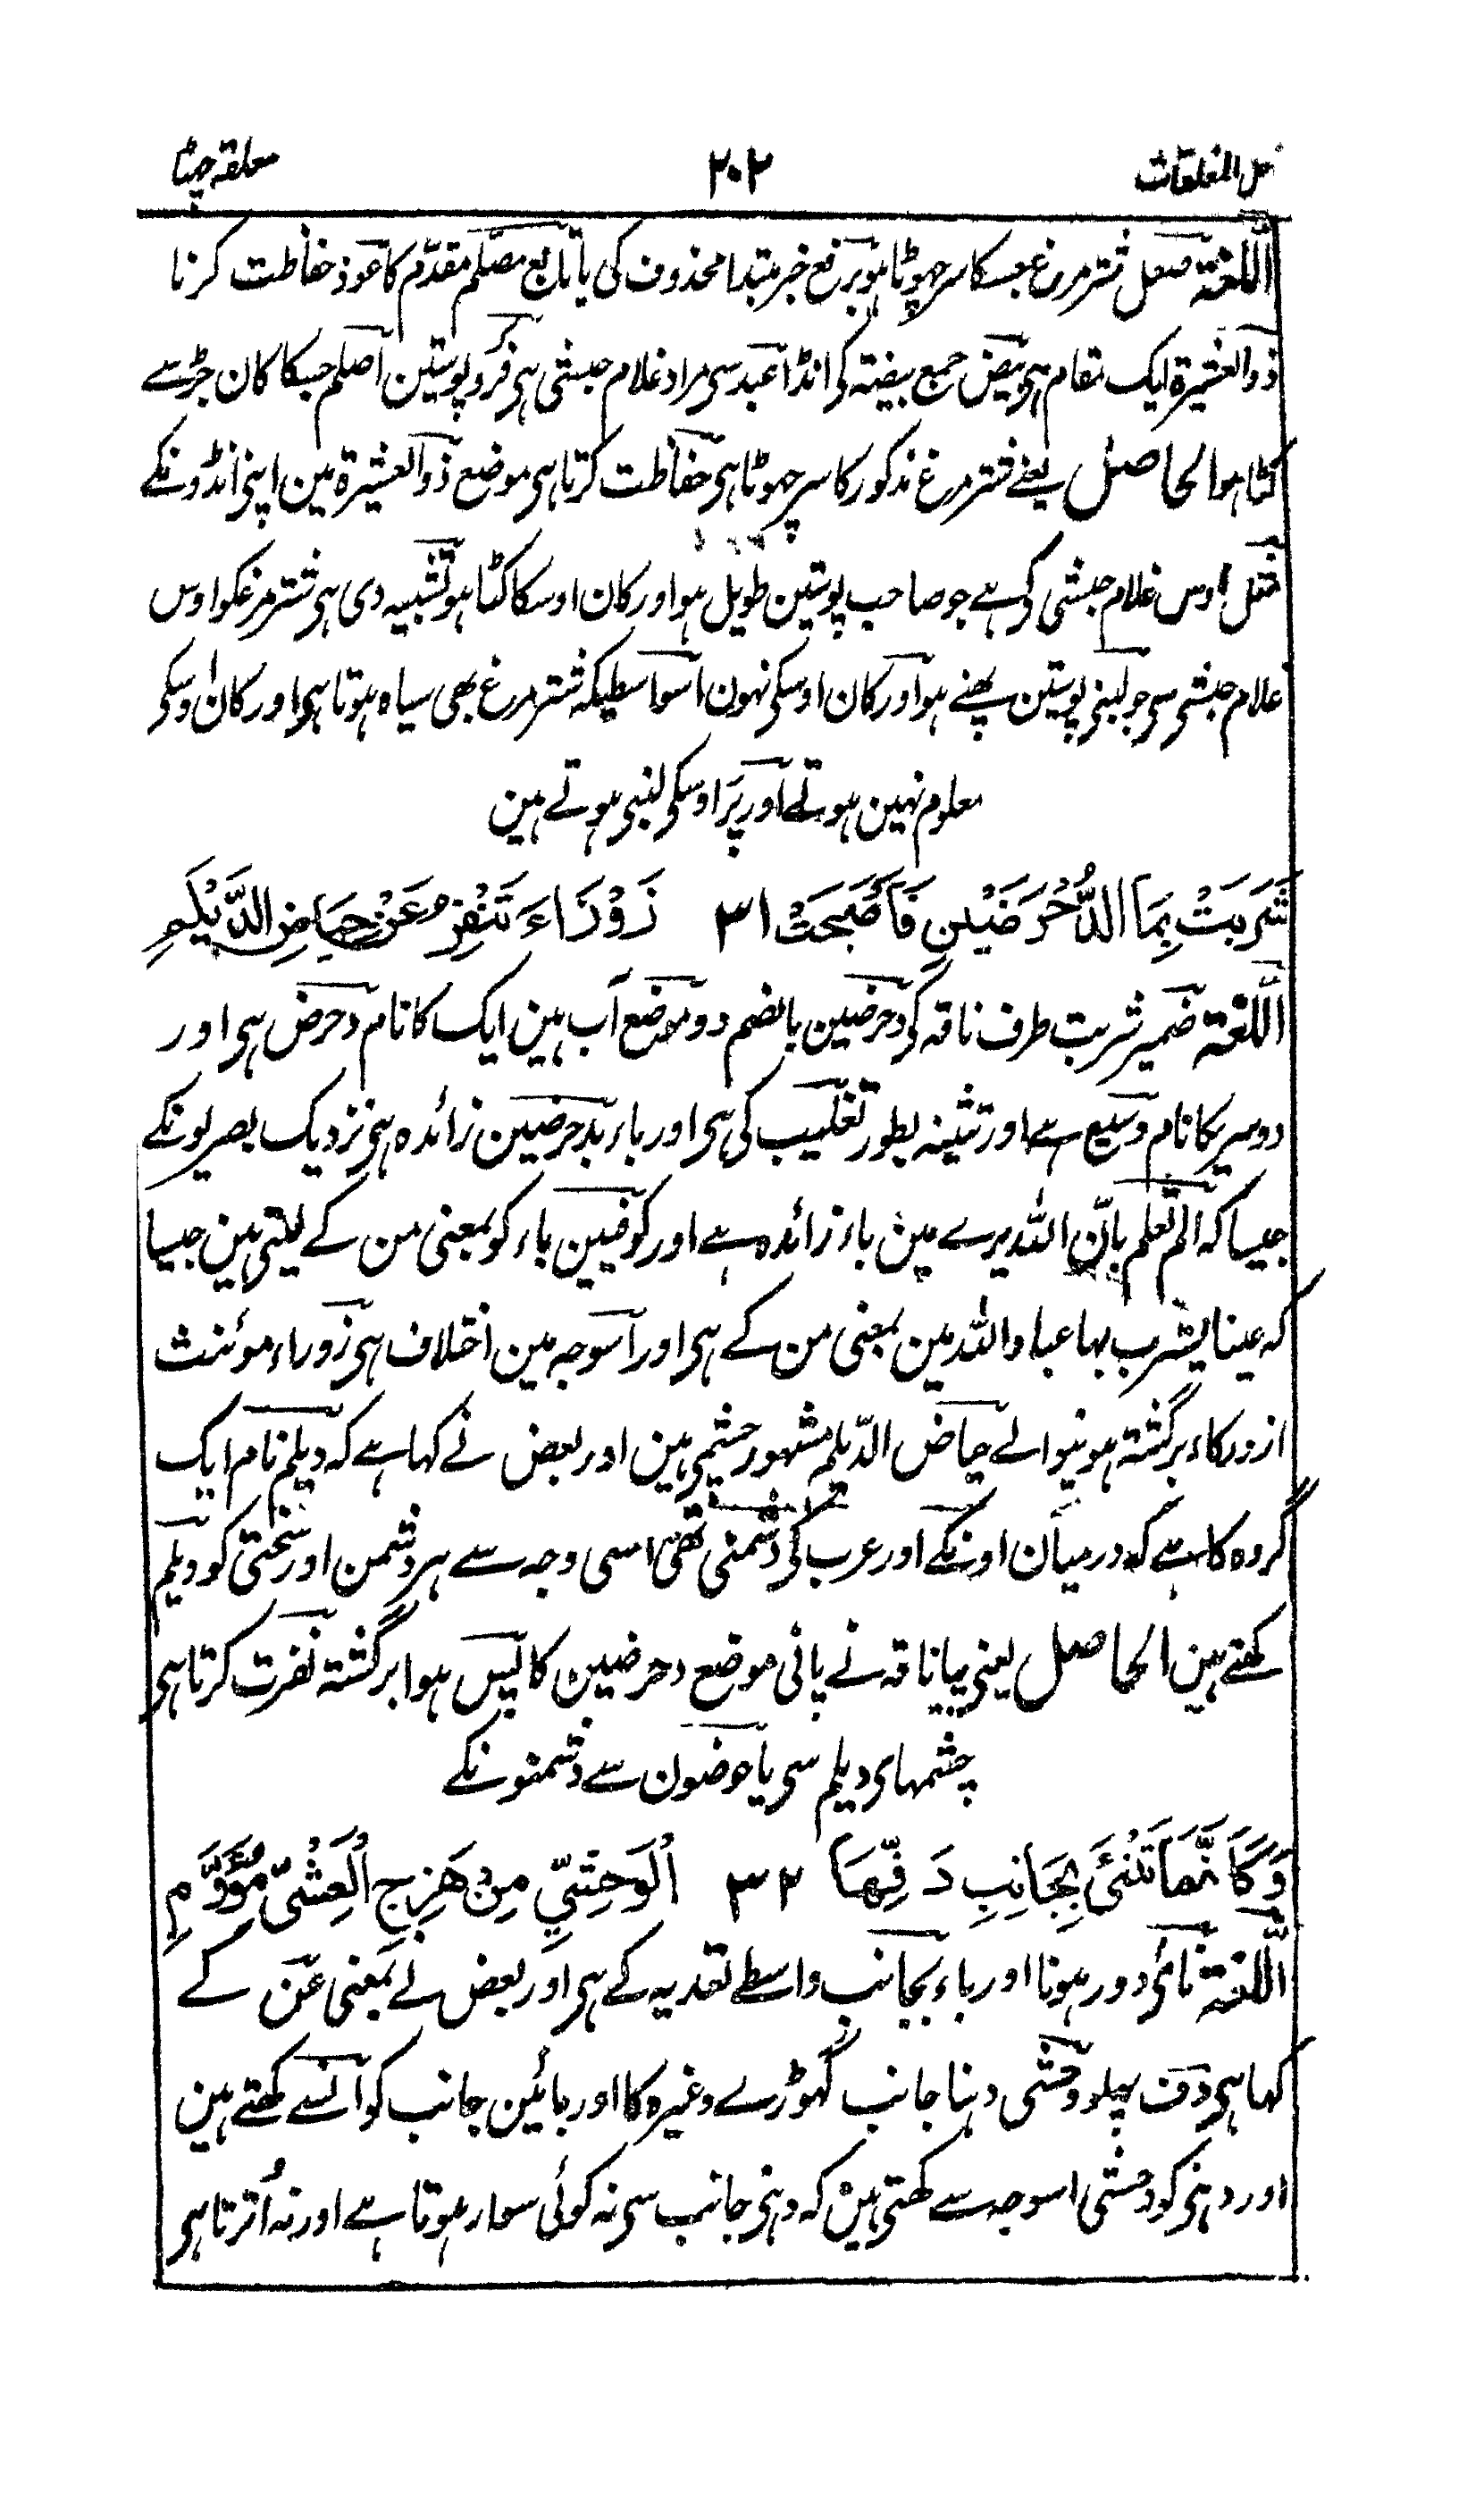 حل المغلقات ۲۰۲ معلقہ چھٹا
اللّغۃ صعل شتر مرغ جسکا سر چھوٹا ہو برفع خبر مبتدا محذوف کی یا تابع مصلم مقدّم کا عوذ حفاظت کرنا
ذو العشیرۃ ایک مقام ہی بیض جمع بیضۃ کی انڈا عبد سی مراد غلام حبشی ہی فرو پوستین اصلم جسکا کان جڑ سے
کٹا ہو الحاصل یعنے شتر مرغ مذکور کا سر چھوٹا ہی حفاظت کرتا ہی موضع ذو العشیرۃ مین اپنی انڈونکے
مثل اوس غلام حبشی کی ہے جو صاحب پوستین طویل ہو اور کان اوسکا کٹا ہو تشبیہ دی ہی شتر مرغکو اوس
غلام حبشی سی جو لنبی پوستین پہنے ہو اور کان اوسکی نہون اسواسطیکہ شتر مرغ بھی سیاہ ہوتا ہی اور کان اوسکی
معلوم نہین ہوتے اور پَر اوسکی لنبی ہوتے ہین
شَرِبَتْ بِمَا الدُّحْرُضَیْنِ فَأَصْبَحَتْ ۳۱ زَوْرَاءَ تَنْفِرُ عَنْ حِیَاضِ الدَّیْلَمِ
اللّغۃ ضمیر شربت طرف ناقہ کی دحرضین بالضم دو موضع آب ہین ایک کا نام دحرض ہی اور
دوسریکا نام وسیع ہے اور تثنیہ بطور تغلیب کی ہی اور باء بدحرضین زائدہ ہی نزدیک بصریونکے
جیسا کہ الم تعلم بانّ اللہ یرے مین باء زائدہ ہے اور کوفیین باء کو بمعنی من کے لیتی ہین جیسا
کہ عینا یشرب بہا عباد اللہ مین بمعنی من کے ہی اور اسوجہ مین اختلاف ہی زوراء مونث
ازور کا برگشتہ ہونیوالے حیاض الدّیلم مشہور چشمی ہین اور بعض نے کہا ہے کہ دیلم نام ایک
گروہ کا ہے کہ درمیان اونکے اور عرب کی دشمنی تھی اسی وجہ سے ہر دشمن اور سختی کو دیلم
کہتے ہین الحاصل یعنی پیا ناقہ نے پانی موضع دحرضین کا پس ہوا برگشتہ نفرت کرتا ہی
چشمہای دیلم سی یا حوضون سے دشمنونکے
وَكَأَنَّمَا تَنْئَى بِجَانِبِ دَفِّهَا ۳۲ الْوَحْشِيِّ مِنْ هَزِجِ الْعَشِيِّ مُؤَوَّمِ
اللّغۃ نائی دور ہونا اور باء بجانب واسطے تعدیہ کے ہی اور بعض نے بمعنی عَن کے
کہا ہی دَف پہلو وحشی دہنا جانب گھوڑے وغیرہ کا اور بائین جانب کو انسے کہتے ہین
اور دہنی کو وحشی اسوجہ سے کہتی ہین کہ دہنی جانب سی نہ کوئی سوار ہوتا ہے اور نہ اُترتا ہی